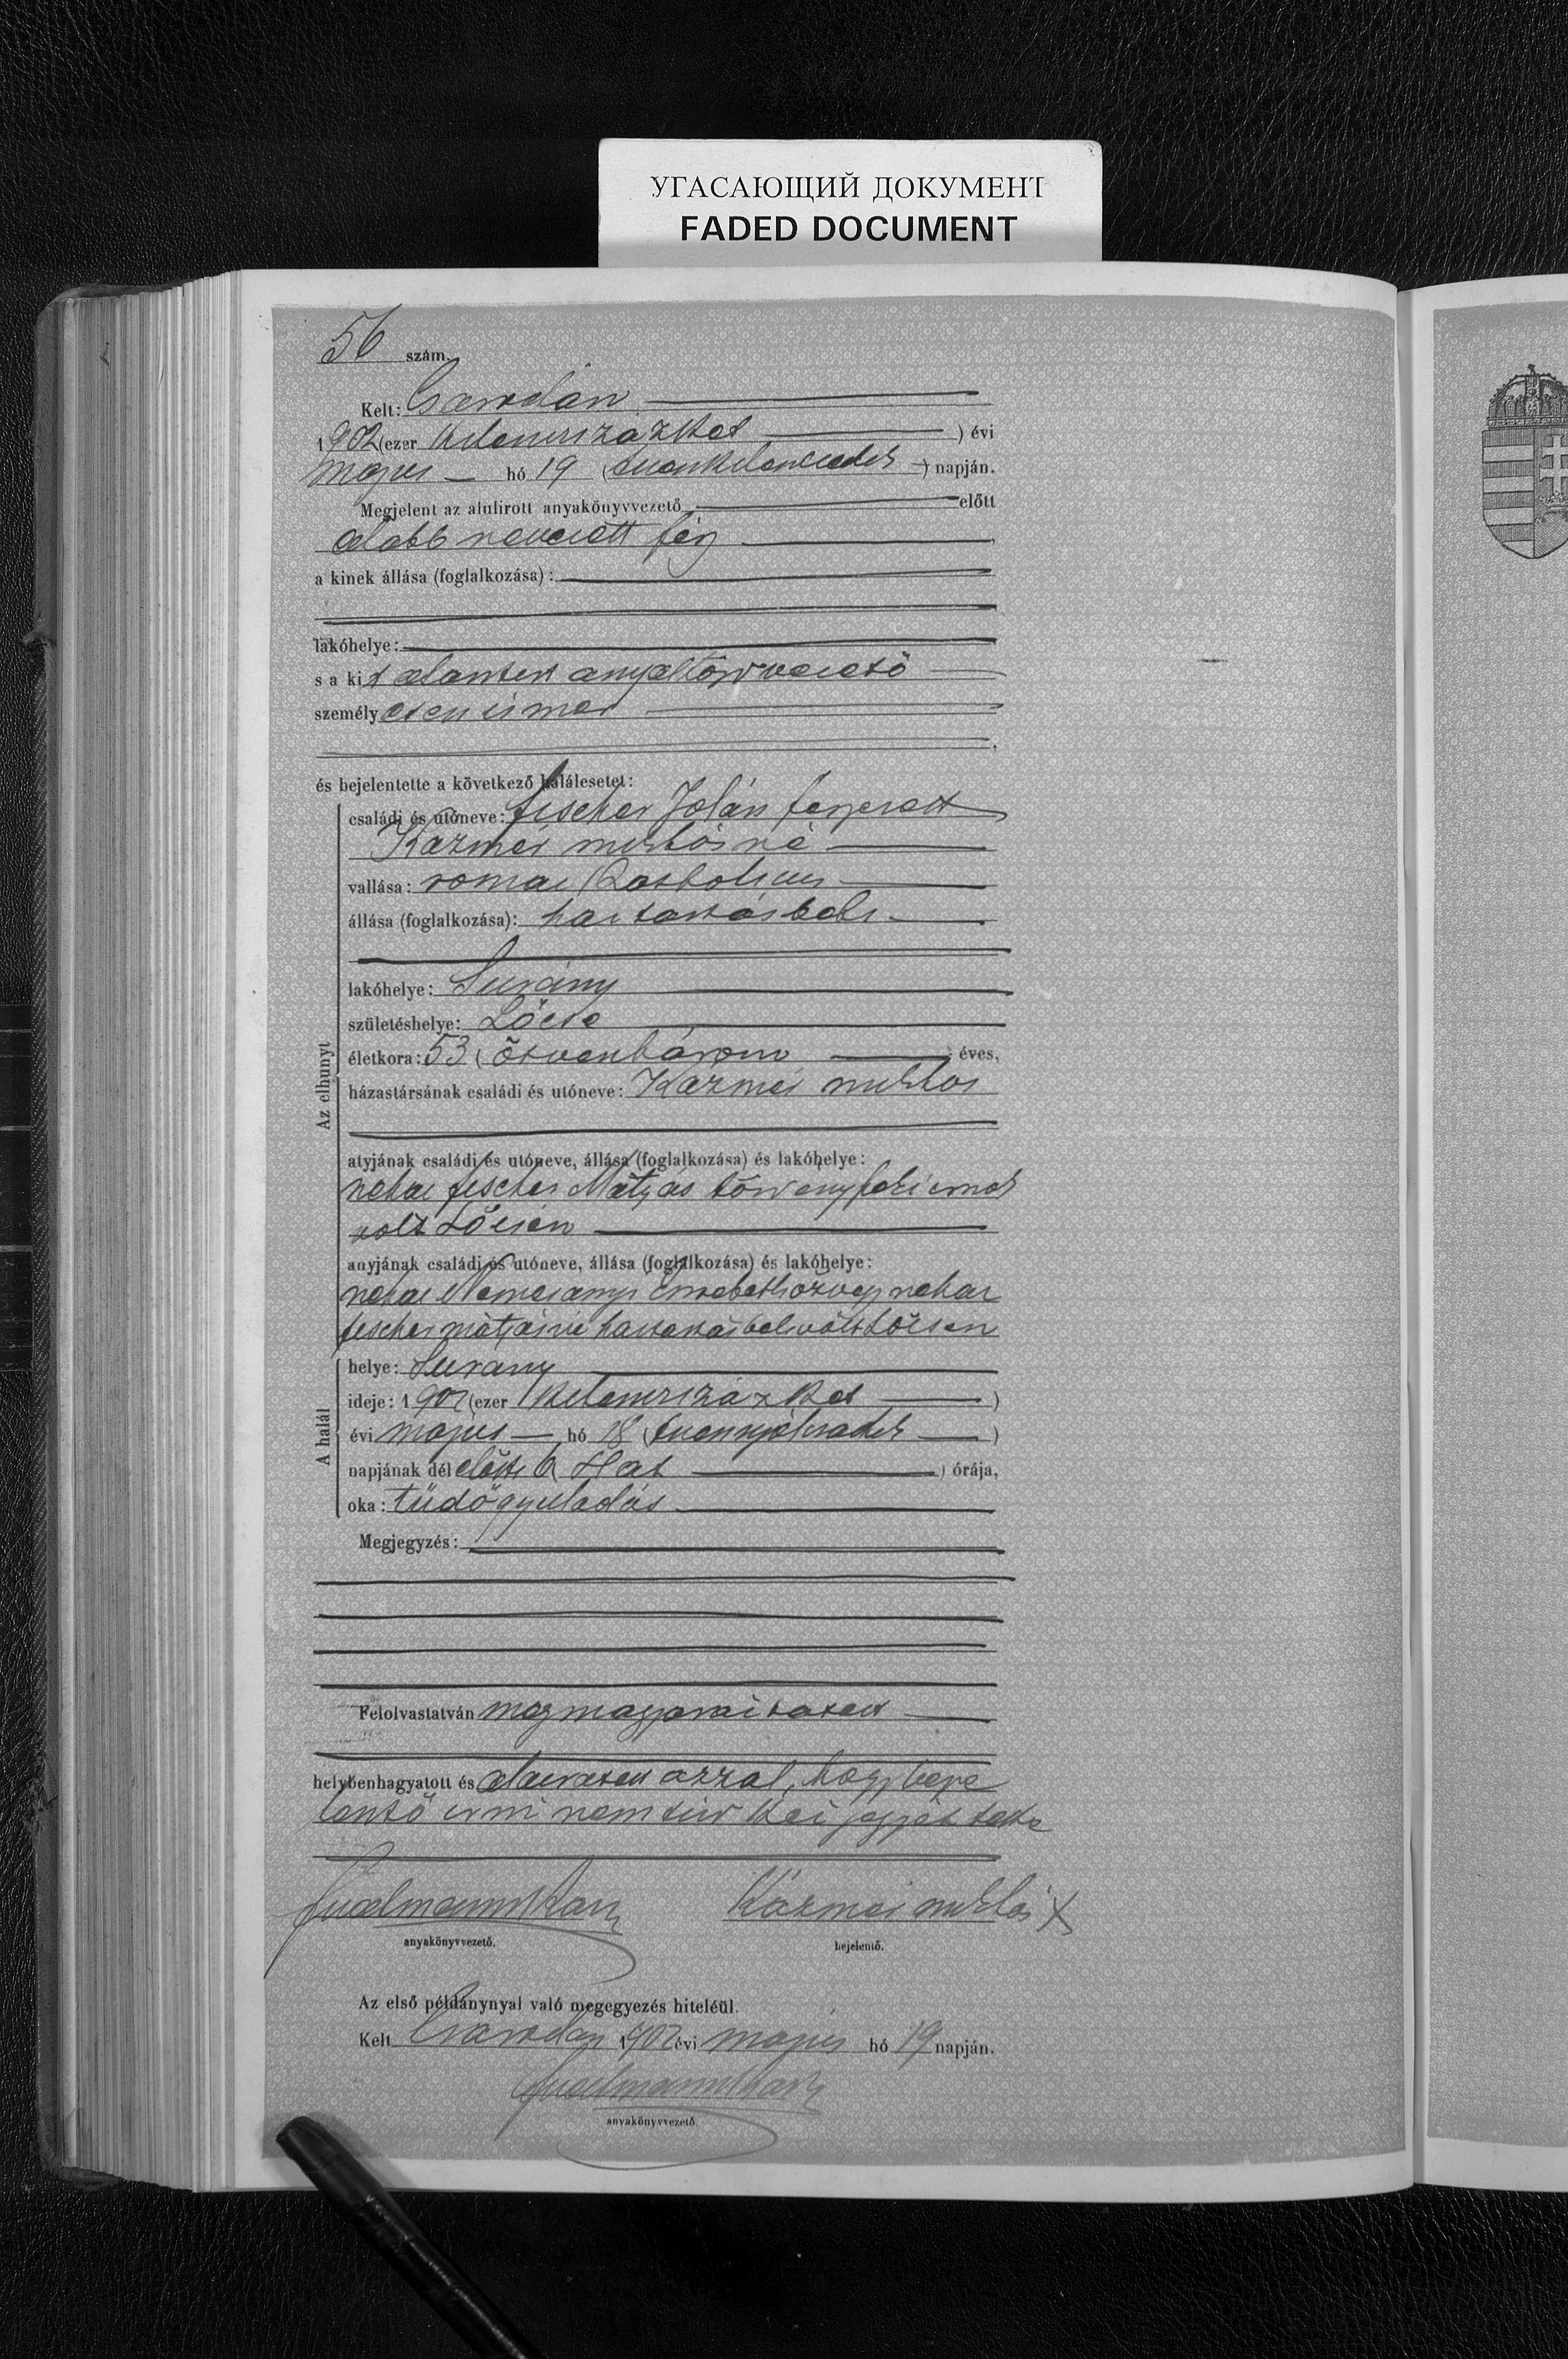 УГАСАЮЩИЙ ДОКУМЕНТ
FADED DOCUMENT
56 szám.
Kelt: Csarodán
1902 (ezer kilencszázkét ) évi
május hó 19 (tizenkilencedik ) napján.
Megjelent az alulirott anyakönyvvezető előtt
alább nevezett férj
a kinek állása (foglalkozása):
lakóhelye:
s a kit alantirt anyakönyvvezető
személyesen ismer
és bejelentette a következő halálesetet:
Az elhunyt
családi és utóneve: Fischer Jolán
Kázméi Miklósné
vallása: romai katholicus
állása (foglalkozása): háztartásbeli
lakóhelye: Surány
születéshelye: Lőcse
életkora: 53 (ötvenhárom ) éves,
házastársának családi és utóneve: Kázméi Miklos
atyjának családi és utóneve, állása (foglalkozása) és lakóhelye:
néhai Fischer Mátyás törvényszéki
volt Lőcsén
anyjának családi és utóneve, állása (foglalkozása) és lakóhelye:
néhai Erzsébeth özvegy néhai
Fischer Mátyásné háztartásbeli volt Lőcsén
A halál
helye: Surány
ideje: 1902 (ezer kilencszázkét )
évi május hó 18 (tizennyolcadik )
napjának délelőtti 6 ( Hat ) órája,
oka: tüdőgyuladás
Megjegyzés:
Felolvastatván megmagyaráztatott
helybenhagyatott és aláiratott azzal, hogy beje
lentő irni nem tud kézjegyét tette
anyakönyvvezető.
Kázméi Miklós X
bejelentő.
Az első példánynyal való megegyezés hiteléül.
Kelt Csarodán 1902 évi május hó 19 napján.
anyakönyvvezető.